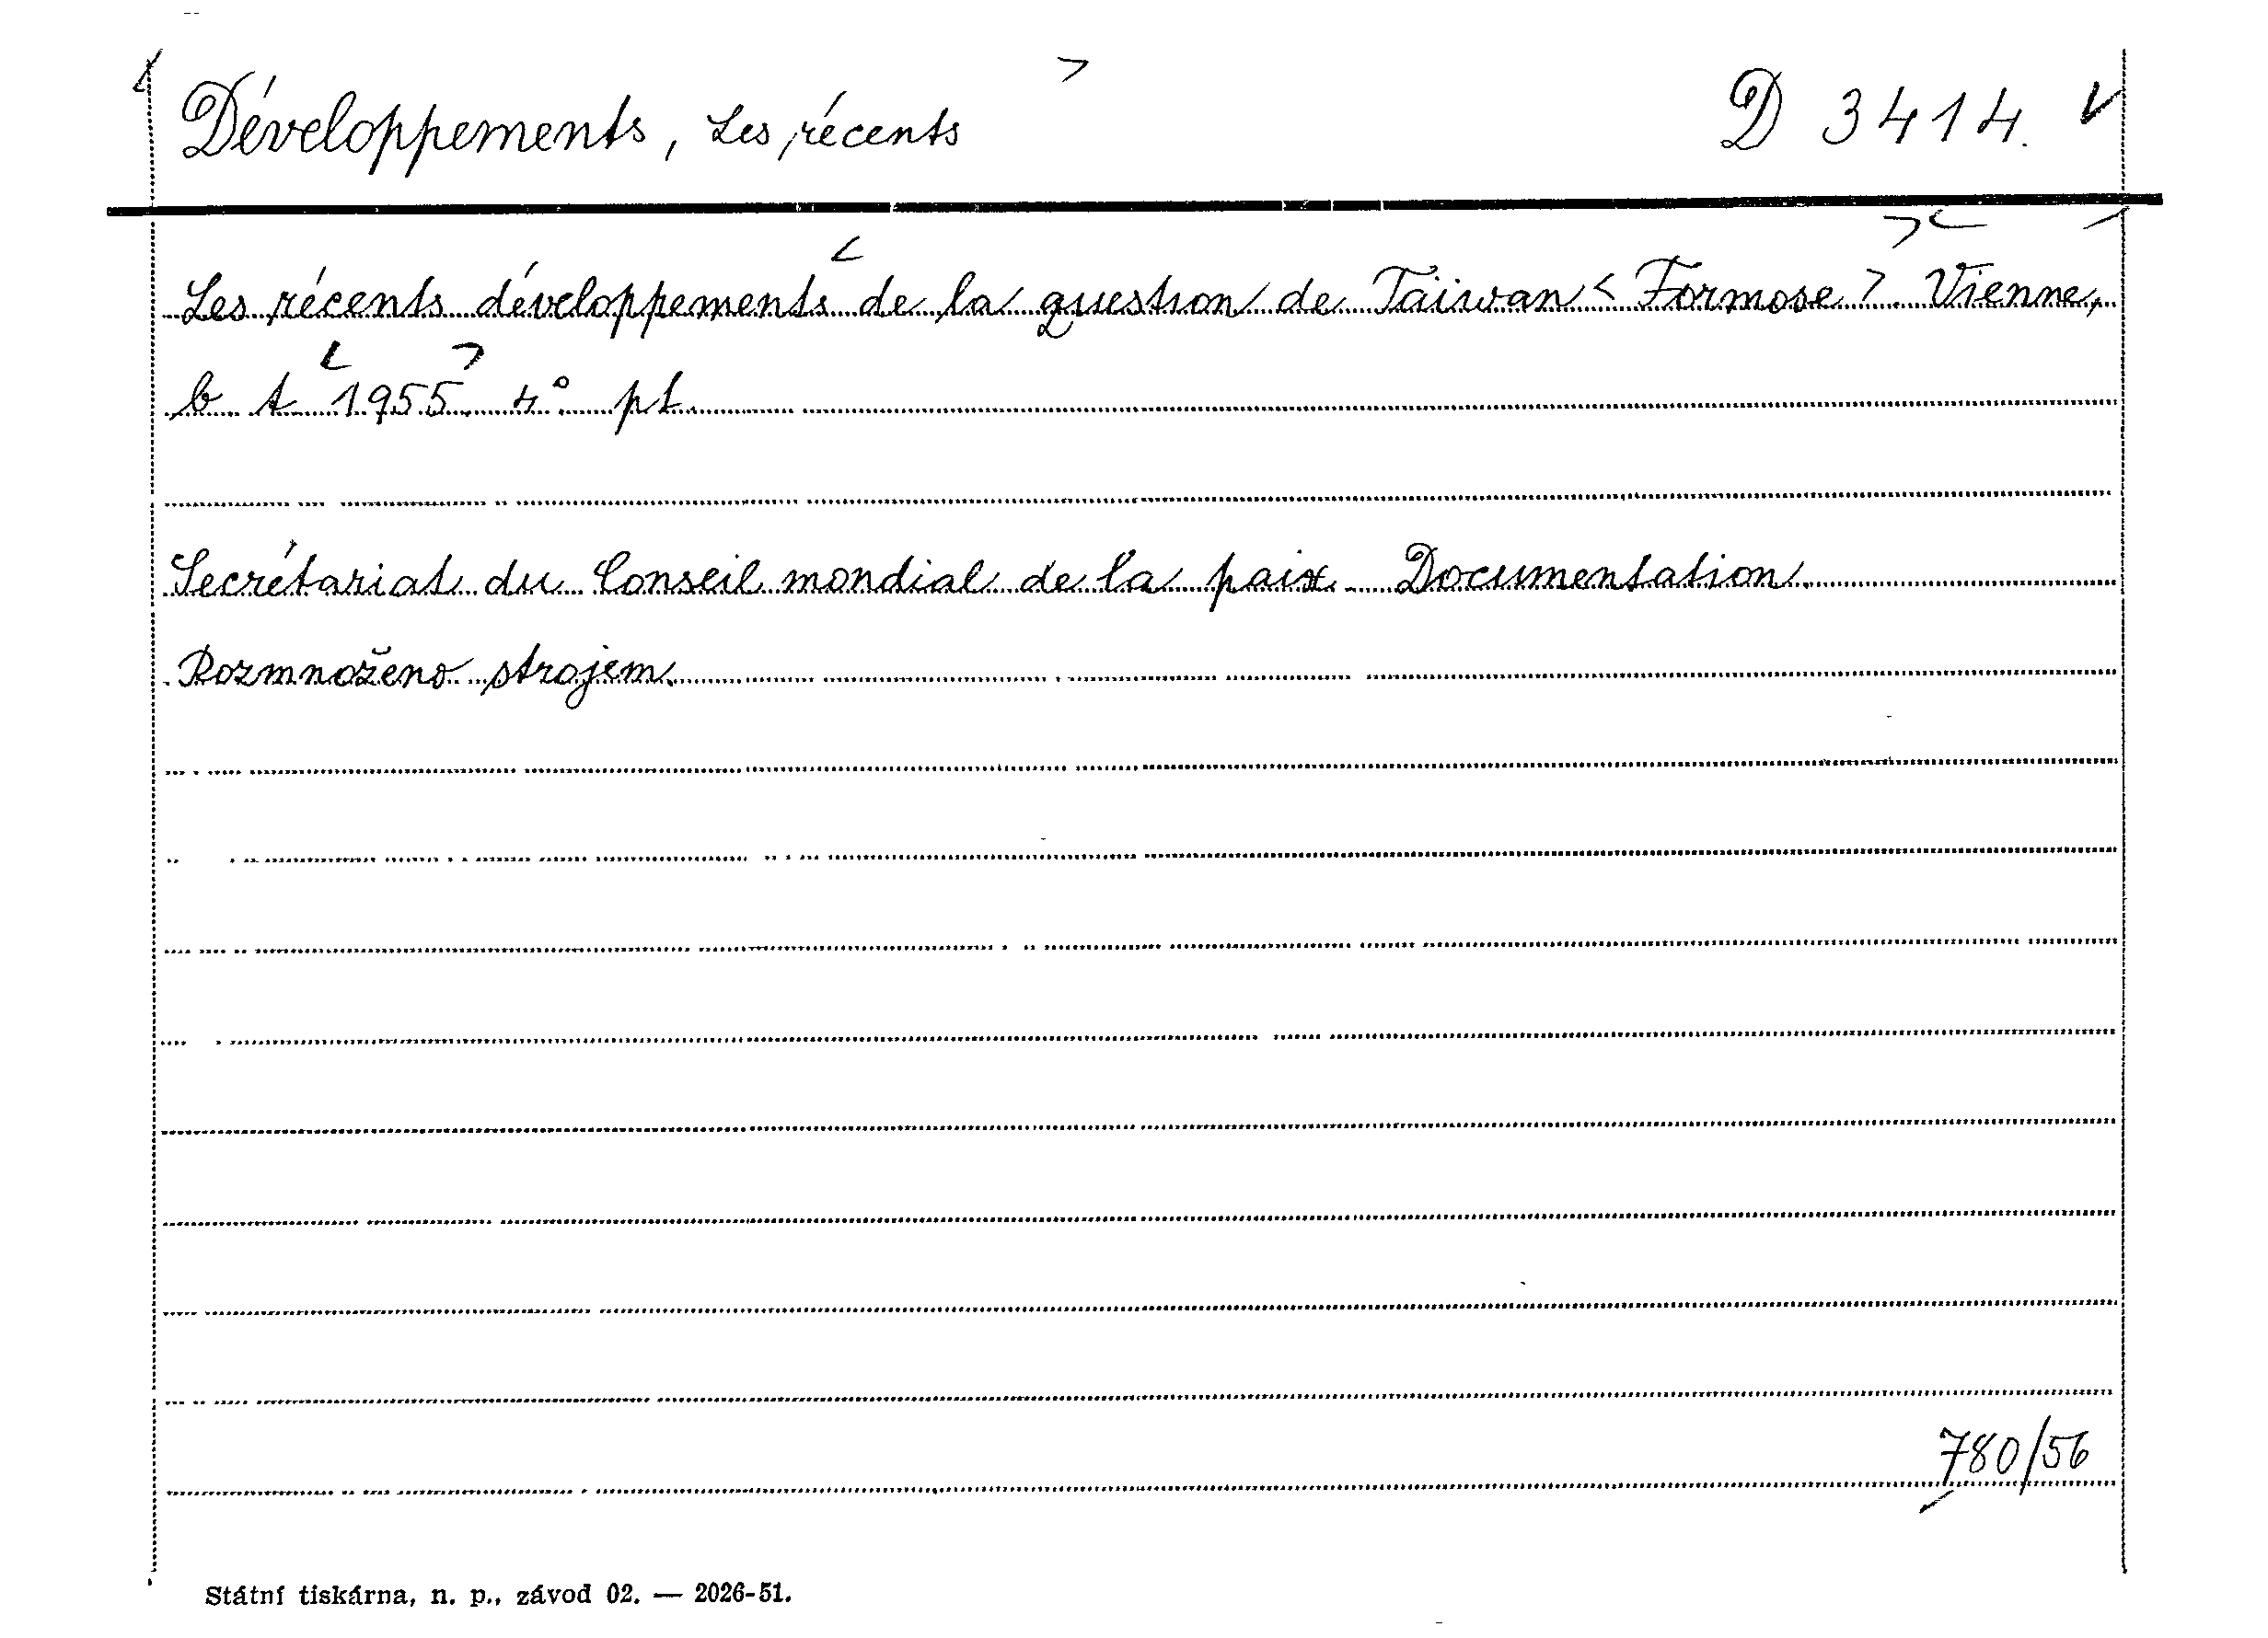 Développements, Les récents D 3414.
Les récents développements de la question de Taiwan < Formose >. Vienne,
b t 1955. 4° pt.
Secrétariat du Conseil mondial de la paix. Documentation.
Rozmnoženo strojem.
780/56
Státní tiskárna, n. p., závod 02. — 2026-51.